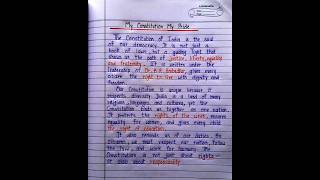 My Constitution My Pride
The Constitution of India is the soul
of our democracy. It is not just a
book of law, but a guiding light that
shows us the path of justice, liberty, equality
and fraternity. It is written under the
leadership of Dr. B.R. Ambedkar, gives every
citizen the right to live with dignity and
freedom.
Our Constitution is unique because it
respects diversity. India is a land of many
religions, languages and cultures, yet the
Constitution binds us together as one nation.
It protects the rights of the weak, ensures
equality for women, and gives every child
the right of education.
It also reminds us of our duties. As
citizens, we must respect our nation, follow
the law, and work for harmony. The
Constitution is not just about rights
also about responsibility.